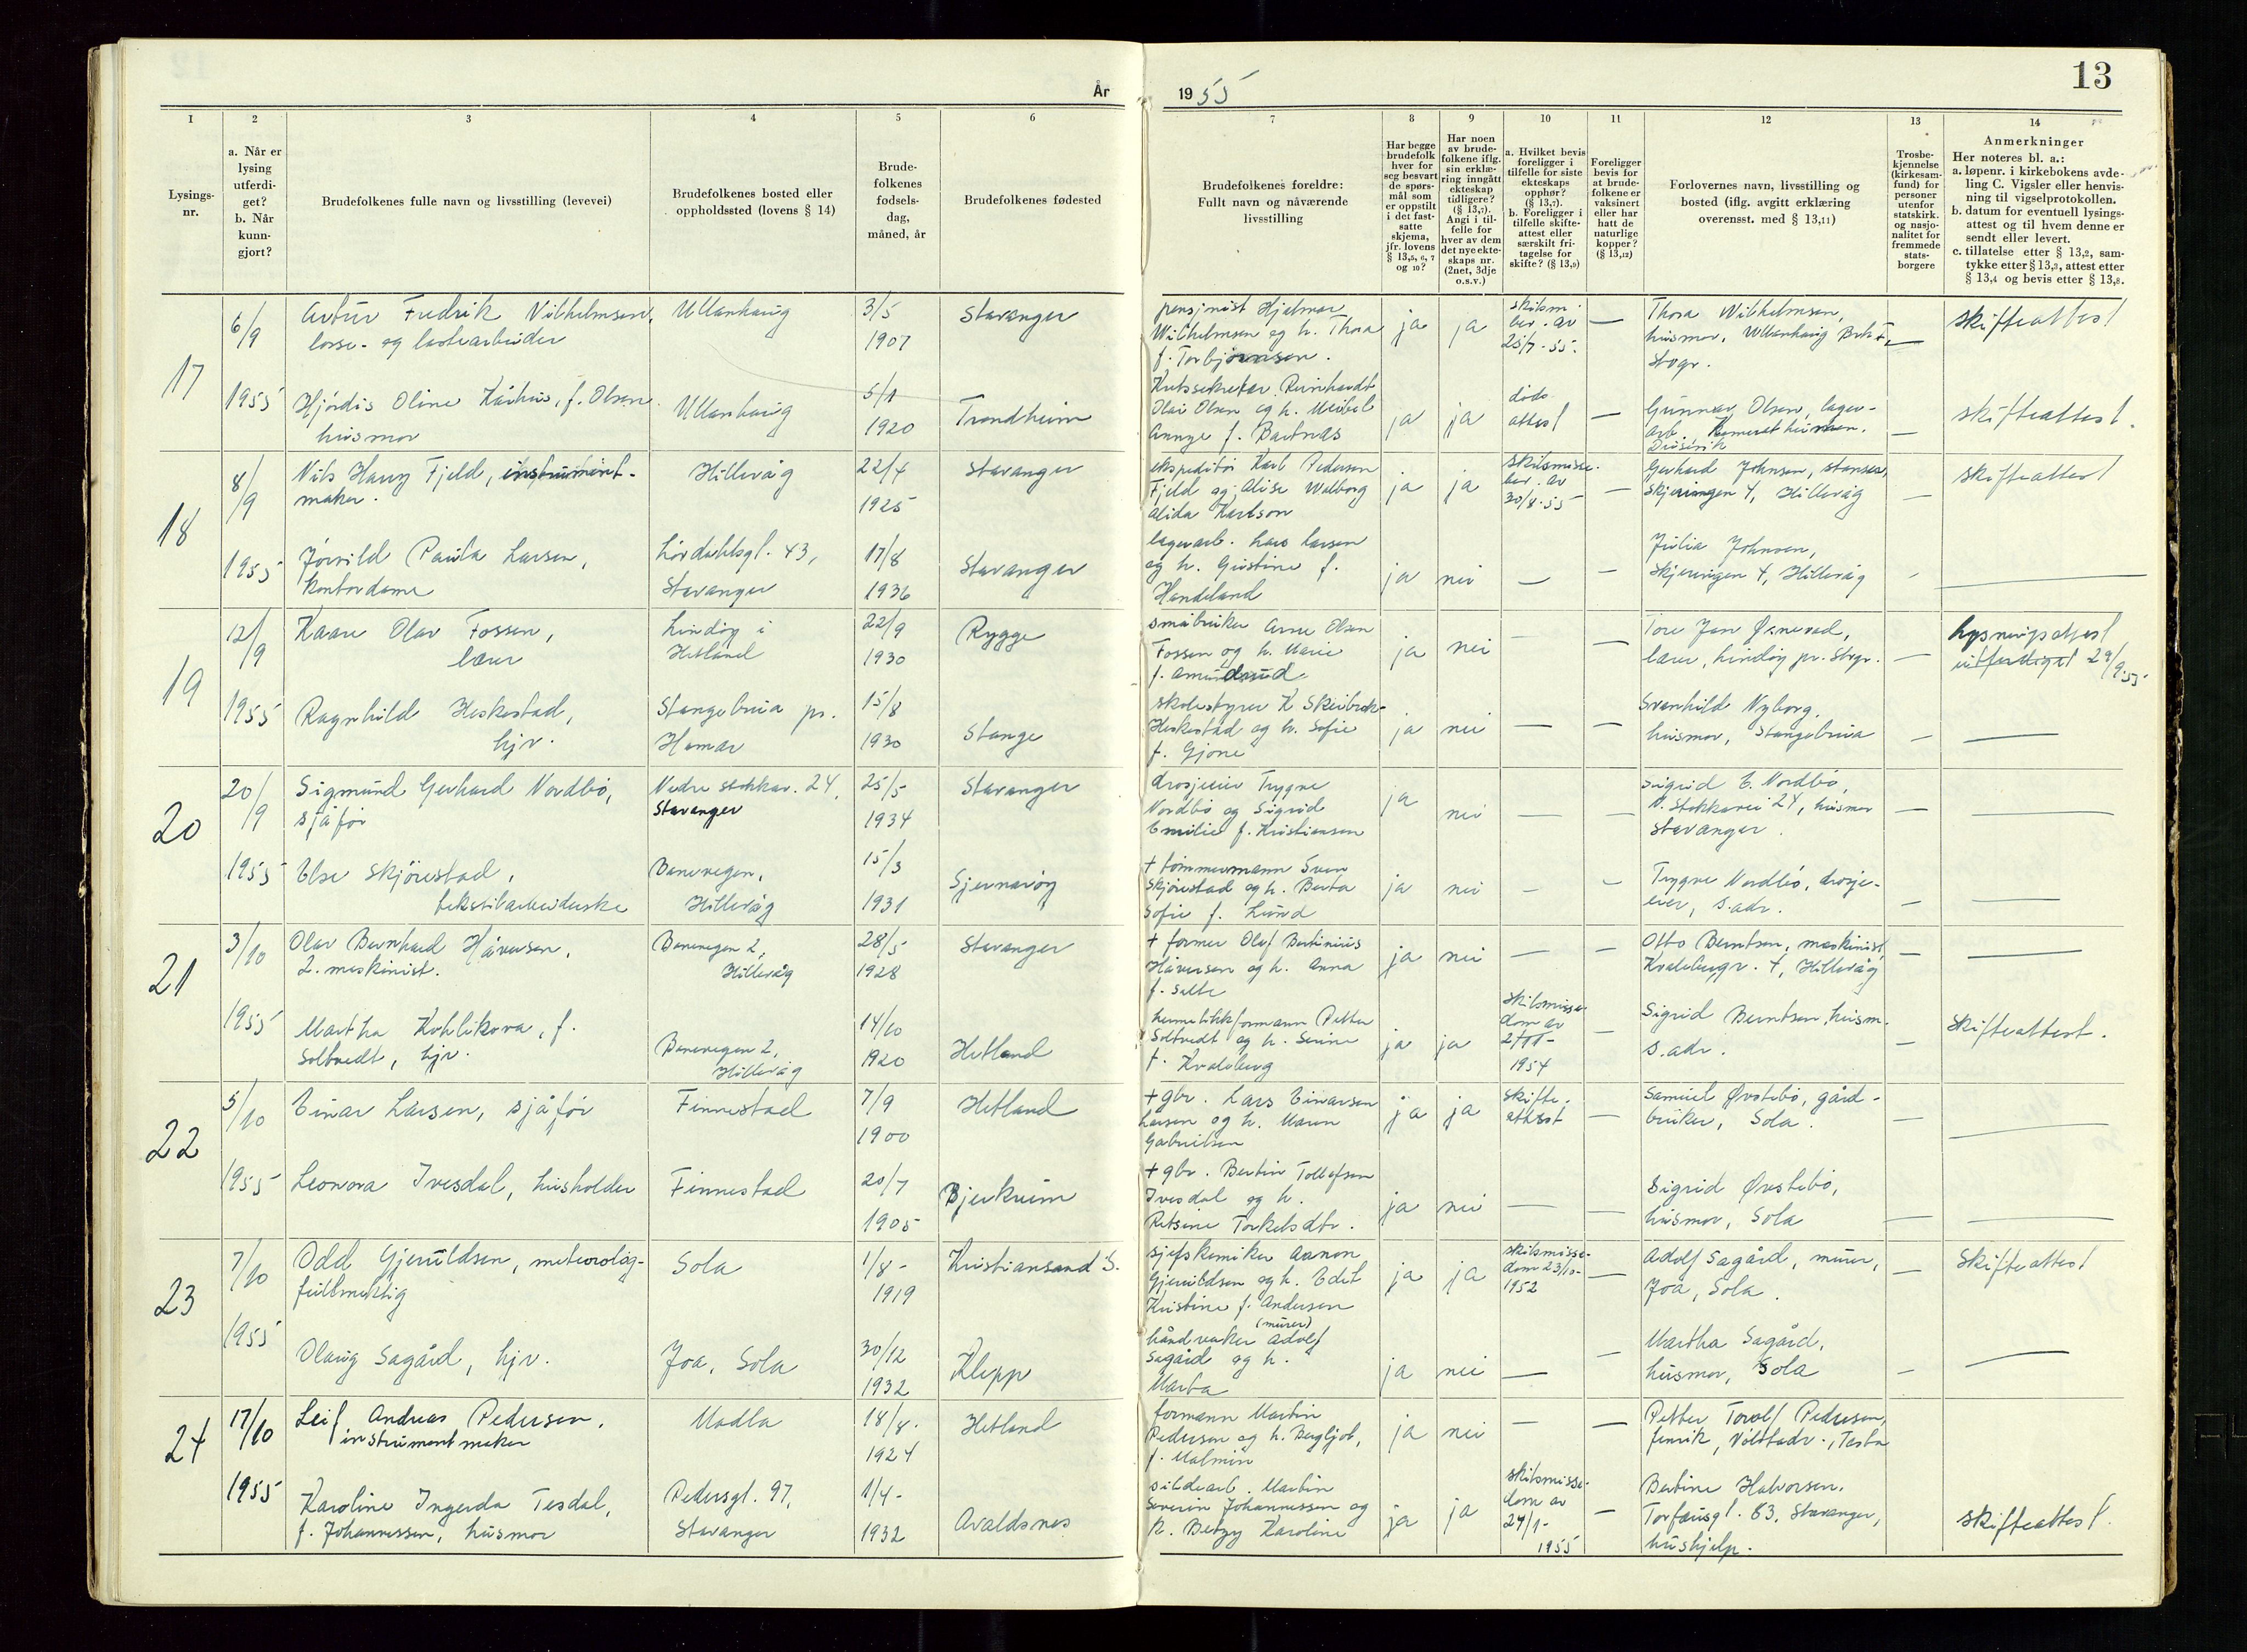 År
1955
13
1
2
3
4
5
6
7
8
9
10
11
12
13
14
Lysings-
nr.
a. Når er
lysing
utferdi-
get?
b. Når
kunn-
gjort?
Brudefolkenes fulle navn og livsstilling (levevei)
Brudefolkenes bosted eller
oppholdssted (lovens § 14)
Brude-
folkenes
fødsels-
dag,
måned, år
Brudefolkenes fødested
Brudefolkenes foreldre:
Fullt navn og nåværende
livsstilling
Har begge
brudefolk
hver for
seg besvart
de spørs-
mål som
er oppstilt
i det fast-
satte
skjema,
jfr. lovens
§ 13,5, 6, 7
og 10?
Har noen
av brude-
folkene iflg.
sin erklæ-
ring inngått
ekteskap
tidligere?
(§ 13,7).
Angi i til-
felle for
hver av dem
det nye ekte-
skaps nr.
(2net, 3dje
o.s.v.)
a. Hvilket bevis
foreligger i
tilfelle for siste
ekteskaps
opphør?
(§ 13,7).
b. Foreligger i
tilfelle skifte-
attest eller
særskilt fri-
tagelse for
skifte? (§ 13,9)
Foreligger
bevis for
at brude-
folkene er
vaksinert
eller har
hatt de
naturlige
kopper?
(§ 13,12)
Forlovernes navn, livsstilling og
bosted (iflg. avgitt erklæring
overensst. med § 13,11)
Trosbe-
kjennelse
(kirkesam-
fund) for
personer
utenfor
statskirk.
og nasjo-
nalitet for
fremmede
stats-
borgere
Anmerkninger
Her noteres bl. a.:
a. løpenr. i kirkebokens avde-
ling C. Vigsler eller henvis-
ning til vigselprotokollen.
b. datum for eventuell lysings-
attest og til hvem denne er
sendt eller levert.
c. tillatelse etter § 13,2, sam-
tykke etter § 13,3, attest etter
§ 13,4 og bevis etter § 13,8.
17
6/9
1955
Artur Fredrik Vilhelmsen,
losse- og lastearbeider
Ullanhaug
3/5
1907
Stavanger
pensjonist Hjalmar
Wilhelmsen og h. Thora
f. Torbjørnsen.
ja
ja
skilsm.
bev. av
25/7-55.
—
Thora Wilhelmsen,
husmor, Ullanhaug
Stvgr.
—
skifteattest
Hjördis Oline Kårhus, f. Olsen
husmor
Ullanhaug
5/1
1920
Trondheim
Reinhardt
Olai Olsen og h.
f.
ja
ja
døds
attest
—
Gunnar Olsen, lager-
arb.
—
skifteattest.
18
8/9
1955
Nils Harry Fjeld, instrument-
maker.
Hillevåg
22/4
1925
Stavanger
ekspeditör Karl Pedersen
Fjeld og Alise Walborg
Alida Karlson
ja
ja
skilsmisse-
bev. av
30/8-55
—
Gerhard Johnsen,
Skjeringen 4, Hillevåg
—
skifteattest
Jörvild Paula Larsen,
kontordame
43,
Stavanger
17/8
1936
Stavanger
lagerarb. Lars Larsen
og h. Gustine f.
Handeland
ja
nei
—
—
Julia Johnsen,
Skjeringen 4, Hillevåg
-
—
19
12/9
1955
Kaare Olav Fossen,
lærer
Lindöy i
Hetland
22/9
1930
Rygge
småbruker Arne Olsen
Fossen og h. Marie
f. Amundsrud
ja
nei
—
—
Tore Jan Øsnevad,
lærer, Lindöy pr. Stvgr.
—
lysningsattest
utferdiget 29/9.55
Ragnhild Heskestad,
hjv.
Stangebruia pr.
Hamar
15/8
1930
Stange
skolestyrer K Skeibrok-
Heskestad og h. Sofie
f. Gjone
ja
nei
—
—
Svanhild Nyborg,
husmor, Stangebruia
—
—
20
20/9
1955
Sigmund Gerhard Nordbö,
sjåför
Nedre Stokkav. 24,
Stavanger
25/5
1934
Stavanger
drosjeeier Trygve
Nordbö og Sigrid
Emilie f. Kristiansen
ja
nei
—
—
Sigrid E. Nordbö,
N. Stokkavei 24, husmor
Stavanger.
—
—
Else Skjörestad,
tekstilarbeiderske
Banevegen,
Hillevåg
15/3
1931
Sjernaröy
+ tömmermann Sven
Skjörestad og h. Berta
Sofie f. Lund
ja
nei
—
—
Trygve Nordbö, drosje-
eier, s.adr.
—
—
21
3/10
1955
Olav Bernhard Håversen,
2. maskinist.
Banevegen 2,
Hillevåg
28/5
1928
Stavanger
+ former Olaf Bertinius
Håversen og h. Anna
f. Salte
ja
nei
—
—
Otto Berntsen, maskinist,
Kvalebergv. 4, Hillevåg
—
—
Martha Kohlikova, f.
Soltvedt, hjv.
Banevegen 2,
Hillevåg
14/10
1920
Hetland
hermetikkformann Petter
Soltvedt og h. Serine
f. Kvaleberg
ja
ja
skilsmisse-
dom av
2/11-
1954
—
Sigrid Berntsen, husm.
s.adr.
—
Skifteattest.
22
5/10
1955
Einar Larsen, sjåför
Finnestad
7/9
1900
Hetland
+ gbr. Lars Einarsen
Larsen og h. Maren
Gabrielsen
ja
ja
skifte-
attest
—
Samuel Øvstebö, gård-
bruker, Sola.
—
—
Leonora Ivesdal, husholder
Finnestad
20/7
1905
Bjerkreim
+ gbr. Bertin Tollefsen
Ivesdal og h.
Retsine Torkelsdtr.
ja
nei
—
—
Sigrid Øvstebö,
husmor, Sola
—
—
23
7/10
1955
Odd Gjeruldsen, meteorolog-
fullmektig
Sola
1/8-
1919
Kristiansand S.
sjefskemiker Aanon
Gjeruldsen og h. Edit
Kristine f. Andersen
ja
ja
skilsmisse-
dom 23/10-
1952
—
Adolf Sagård, murer,
Joa, Sola.
—
Skifteattest
Olaug Sagård, hjv.
Joa, Sola
30/12
1932
Klepp
(murer)
håndverker Adolf
Sagård og h.
Marta
ja
nei
—
—
Martha Sagård,
husmor, Sola
—
—
24
17/10
1955
Leif Andreas Pedersen,
instrumentmaker
Madla
18/8.
1924
Hetland
formann Martin
Pedersen og h. Bergljot,
f. Malmin
ja
nei
—
—
Petter Torolf Pedersen,
fenrik,
Karoline Ingerda Tesdal,
f. Johannessen, husmor
Pedersgt. 97,
Stavanger
1/4-
1932
Avaldsnes
sildearb. Martin
Severin Johannessen og
h. Betzy Karoline
ja
ja
skilsmisse-
dom av
24/1-
1955
—
Bertine Halvorsen,
Torfæusgt. 63, Stavanger,
hushjelp.
skifteattest.